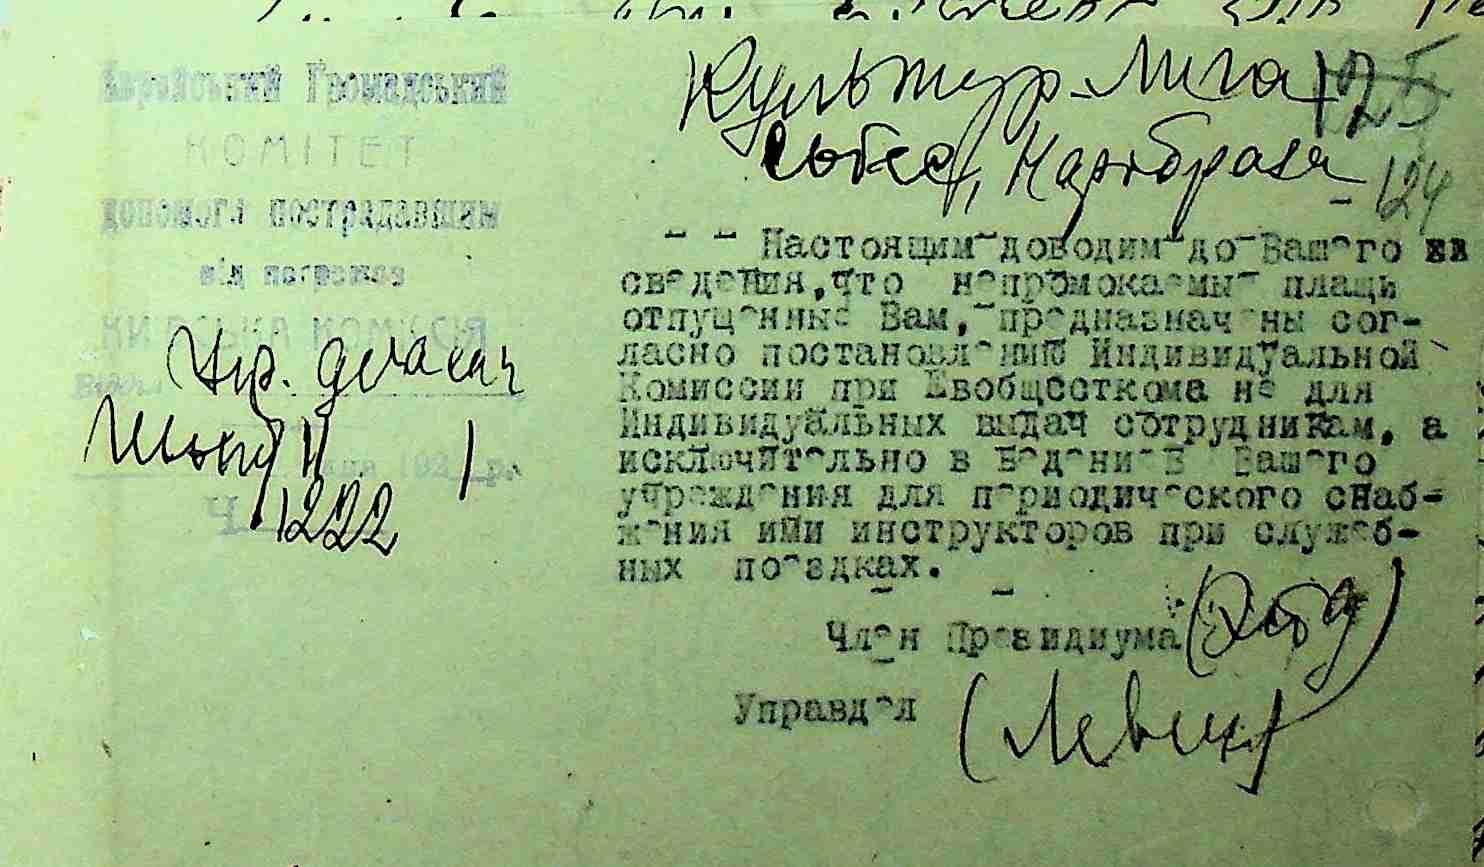 Еврейський Громадський
КОМІТЕТ
допомоги пострадавшим
від погромов
КИІВСЬКА КОМІСІЯ
1222
Культур-Лига
125
Собес, Наробраза
124
Настоящим доводим до Вашего
сведения, что непромокаемые плащи
отпущенные Вам, предназначены сог-
ласно постановлению Индивидуальной
Комиссии при Евобщесткома не для
Индивидуальных выдач сотрудникам, а
исключительно в ведение Вашего
учреждения для периодического снаб-
жения ими инструкторов при служеб-
ных поездках.
Член Президиума
Управдел (Левин)